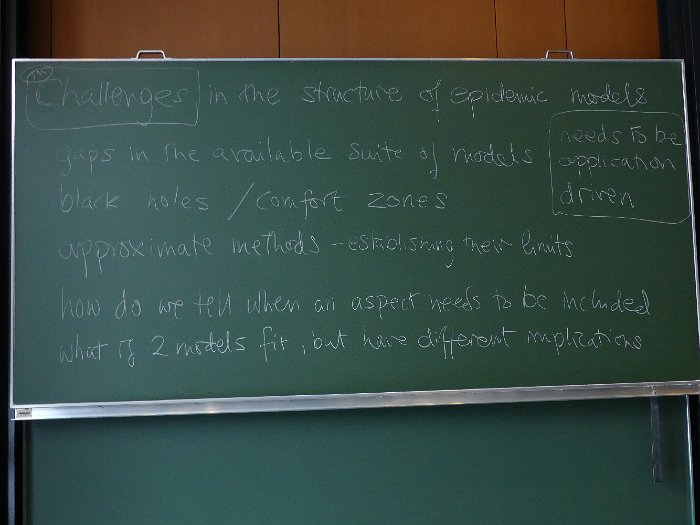 Challenges in the structure of epidemic models
gaps in the available suite of models
black holes / comfort zones
approximate methods - establishing their limits
how do we tell when an aspect needs to be included
what if 2 models fit, but have different implications
needs to be
application
driven